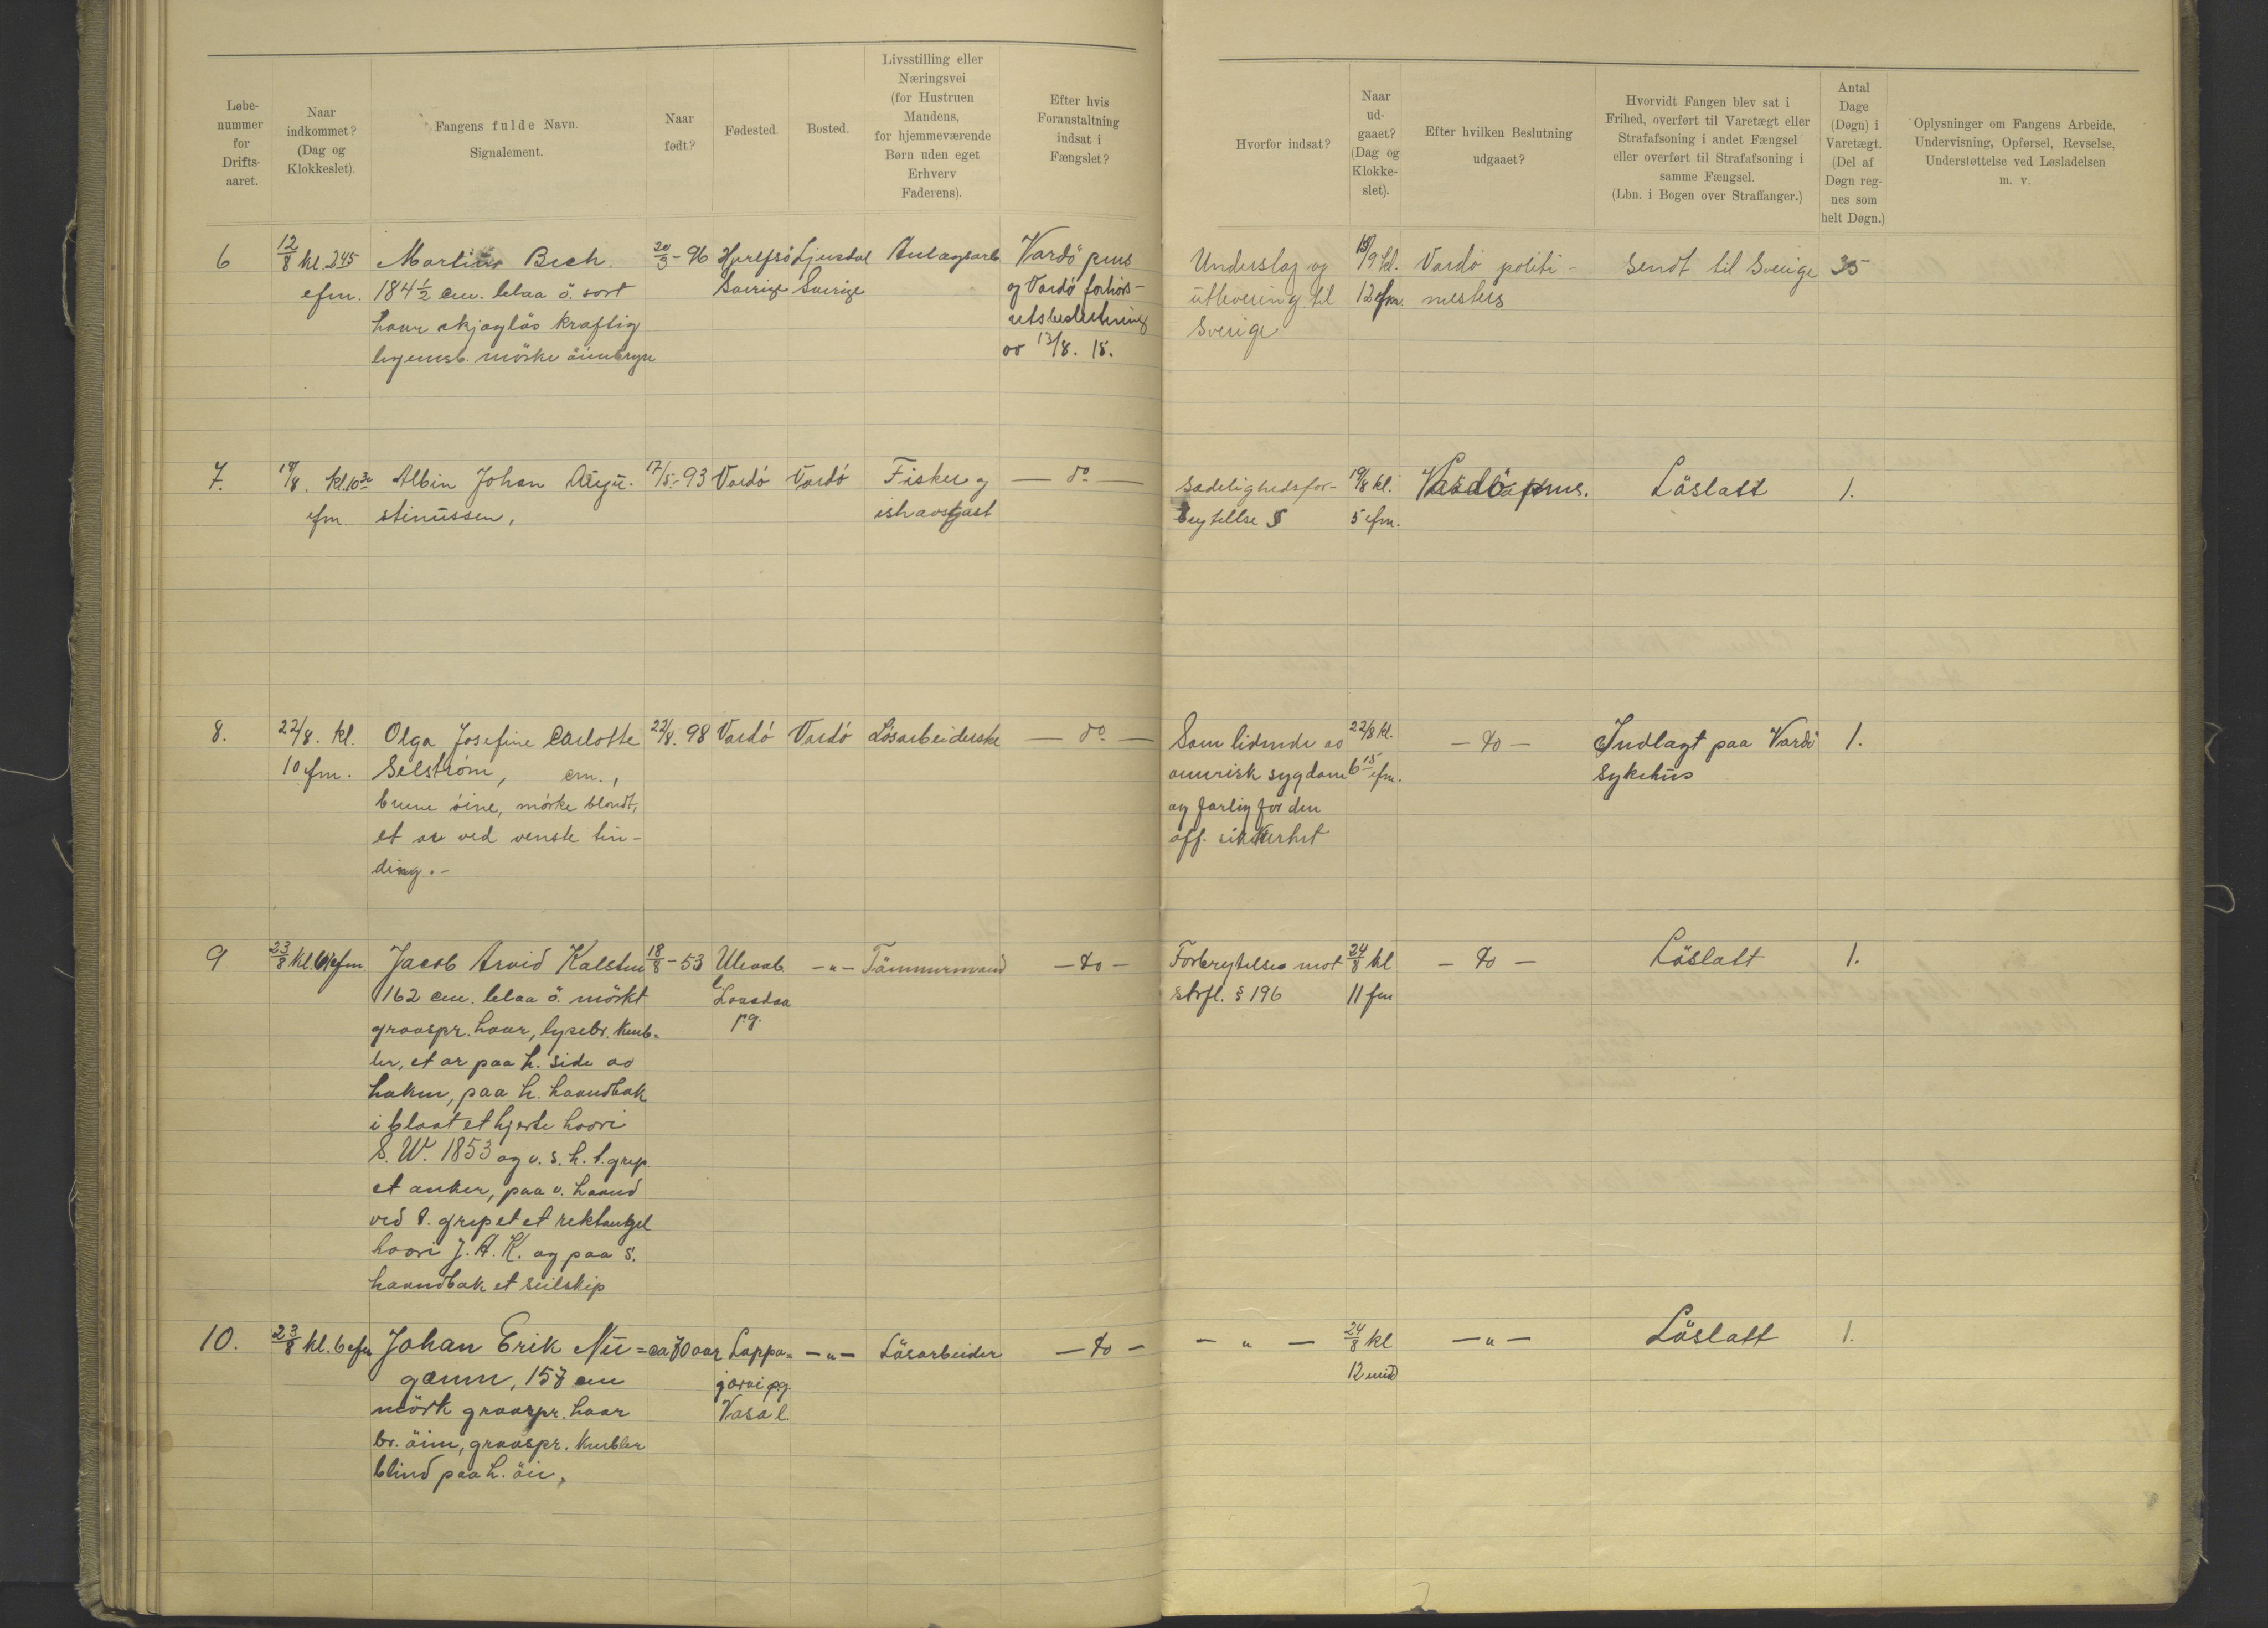 Løbe-
nummer
for
Drifts-
aaret.
Naar
indkommet?
(Dag og
Klokkeslet).
Fangens fulde Navn.
Signalement.
Naar
født?
Fødested.
Bosted.
Livsstilling eller
Næringsvei
(for Hustruen
Mandens,
for hjemmeværende
Børn uden eget
Erhverv
Faderens).
Efter hvis
Foranstaltning
indsat i
Fængslet?
Hvorfor indsat?
Naar
ud-
gaaet?
(Dag og
Klokke-
slet).
Efter hvilken Beslutning
udgaaet?
Hvorvidt Fangen blev sat i
Frihed, overført til Varetægt eller
Strafafsoning i andet Fængsel
eller overført til Strafafsoning i
samme Fængsel.
(Lbn. i Bogen over Straffanger.)
Antal
Dage
(Døgn) i
Varetægt.
(Del af
Døgn reg-
nes som
helt Døgn.)
Oplysninger om Fangens Arbeide,
Undervisning, Opførsel, Revselse,
Understøttelse ved Løsladelsen
m. v.
6
12/8 kl. 2 45
efm.
Martin Bech.
184 1/2 cm. blaa ö. sort
haar skjægløs kraftig
legemsb. mörke öienbryn
20/3 - 96
Sverige
Ljusdal
Sverige
Anlægsarb.
Vardö pms
og Vardö forhörs-
retsbeslutning
av 13/8. 18.
Underslag og
utlevering til
Sverige
/9 kl.
12 efm
Vardö politi-
mesters
Sendt til Sverige
35
7.
/8. kl. 10 30
efm.
Albin Johan Augu-
stinussen.
17/5 - 93
Vardö
Vardö
Fisker og
ishavsgast
— do —
Sædelighedsfor-
brytelse §
19/8 kl.
5 efm.
Vardö pms.
Löslatt
1.
8.
22/8. kl.
10 efm.
Olga Josefine Carlotte
Selström, cm.,
brune öine, mörke blondt,
et ar ved venste tin-
ding. -
22/8. 98
Vardö
Vardö
Lösarbeiderske
— do —
Som lidende av
venerisk sygdom
og farlig for den
off. sikkerhet
22/8 kl.
6 15 efm.
— do —
Indlagt paa Vardö
Sykehus
1.
9
23/8 kl. 6 efm.
Jacob Arvid Kalsten
162 cm. blaa ö. mörkt
graaspr. haar, lysebr. kneb-
ler, et ar paa h. side av
haken, paa h. haandbak
i blaat et hjerte hvori
S. W. 1853 og v. s. h. t. grep
et anker, paa v. haand
ved t. grepet et rektangel
hvori J. A. K. og paa s.
haandbak et seilskip
18/8 - 53
Uleaab.
l
p.g.
— " —
Tömmermand
— do —
Forbrytelse mot
strfl. § 196
24/8 kl
11 fm
— do —
Löslatt
1.
10.
23/8 kl. 6 efm
Johan Erik Nü =
gænn, 157 cm
mörk graaspr. haar
br. öine, graaspr. knebler
blind paa h. öie,
ca 70 aar
Lappa =
jarvi pg.
Vasa l.
— " —
Lösarbeider
— do —
— " —
24/8 kl
12 mid
— " —
Löslatt
1.